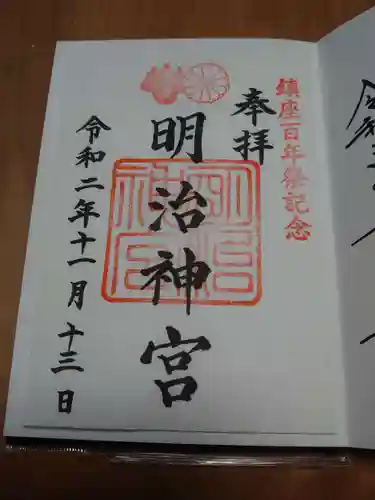 鎮座百年祭記念
奉拝
明治神宮
明治神宮
令和二年十一月十三日